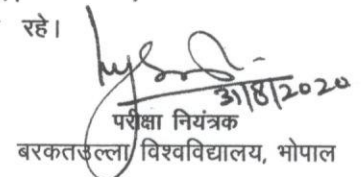 रहे।
31/8/2020
परीक्षा नियंत्रक
बरकतउल्ला विश्वविद्यालय, भोपाल